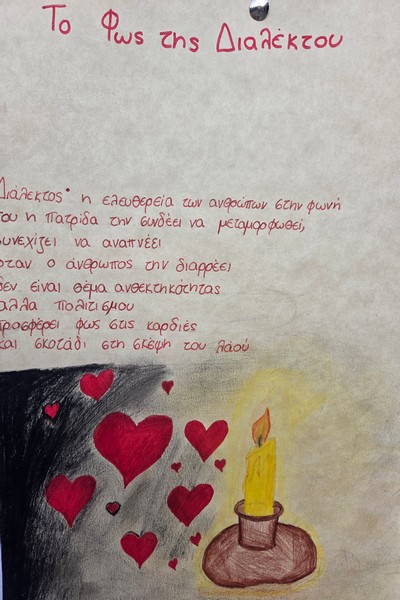 Το Φως της Διαλέκτου
Διάλεκτος· η ελευθερεία των ανθρώπων στην φωνή
του η πατρίδα την συνδέει να μεταμορφωθεί,
συνεχίζει να αναπνέει
όταν ο άνθρωπος την διαρρέει
δεν είναι θέμα ανθεκτηκότητας
αλλα πολιτισμου
προσφέρει φως στις καρδιές
και σκοτάδι στη σκέψη του λαού